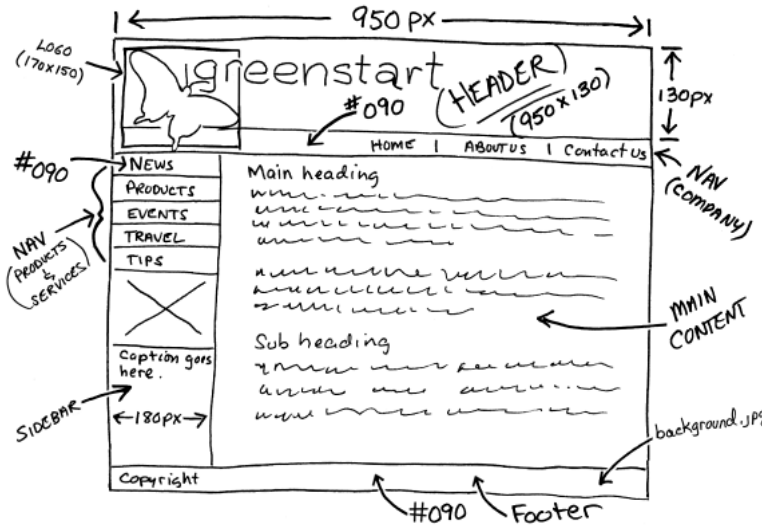 950 PX
LOGO
(170x150)
greenstart
(HEADER)
(950x130)
130px
#090
HOME | ABOUT US | Contact Us
NAV
(COMPANY)
#090
NEWS
PRODUCTS
EVENTS
TRAVEL
TIPS
NAV
(PRODUCTS
&
SERVICES)
Main heading
MAIN
CONTENT
Sub heading
Caption goes
here.
SIDEBAR
180px
background.jpg
Copyright
#090
Footer